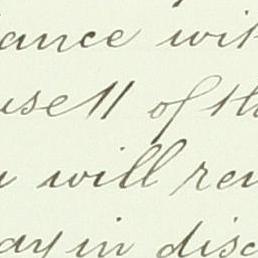 ance wit
use 11 of th
will ren
ay in disc